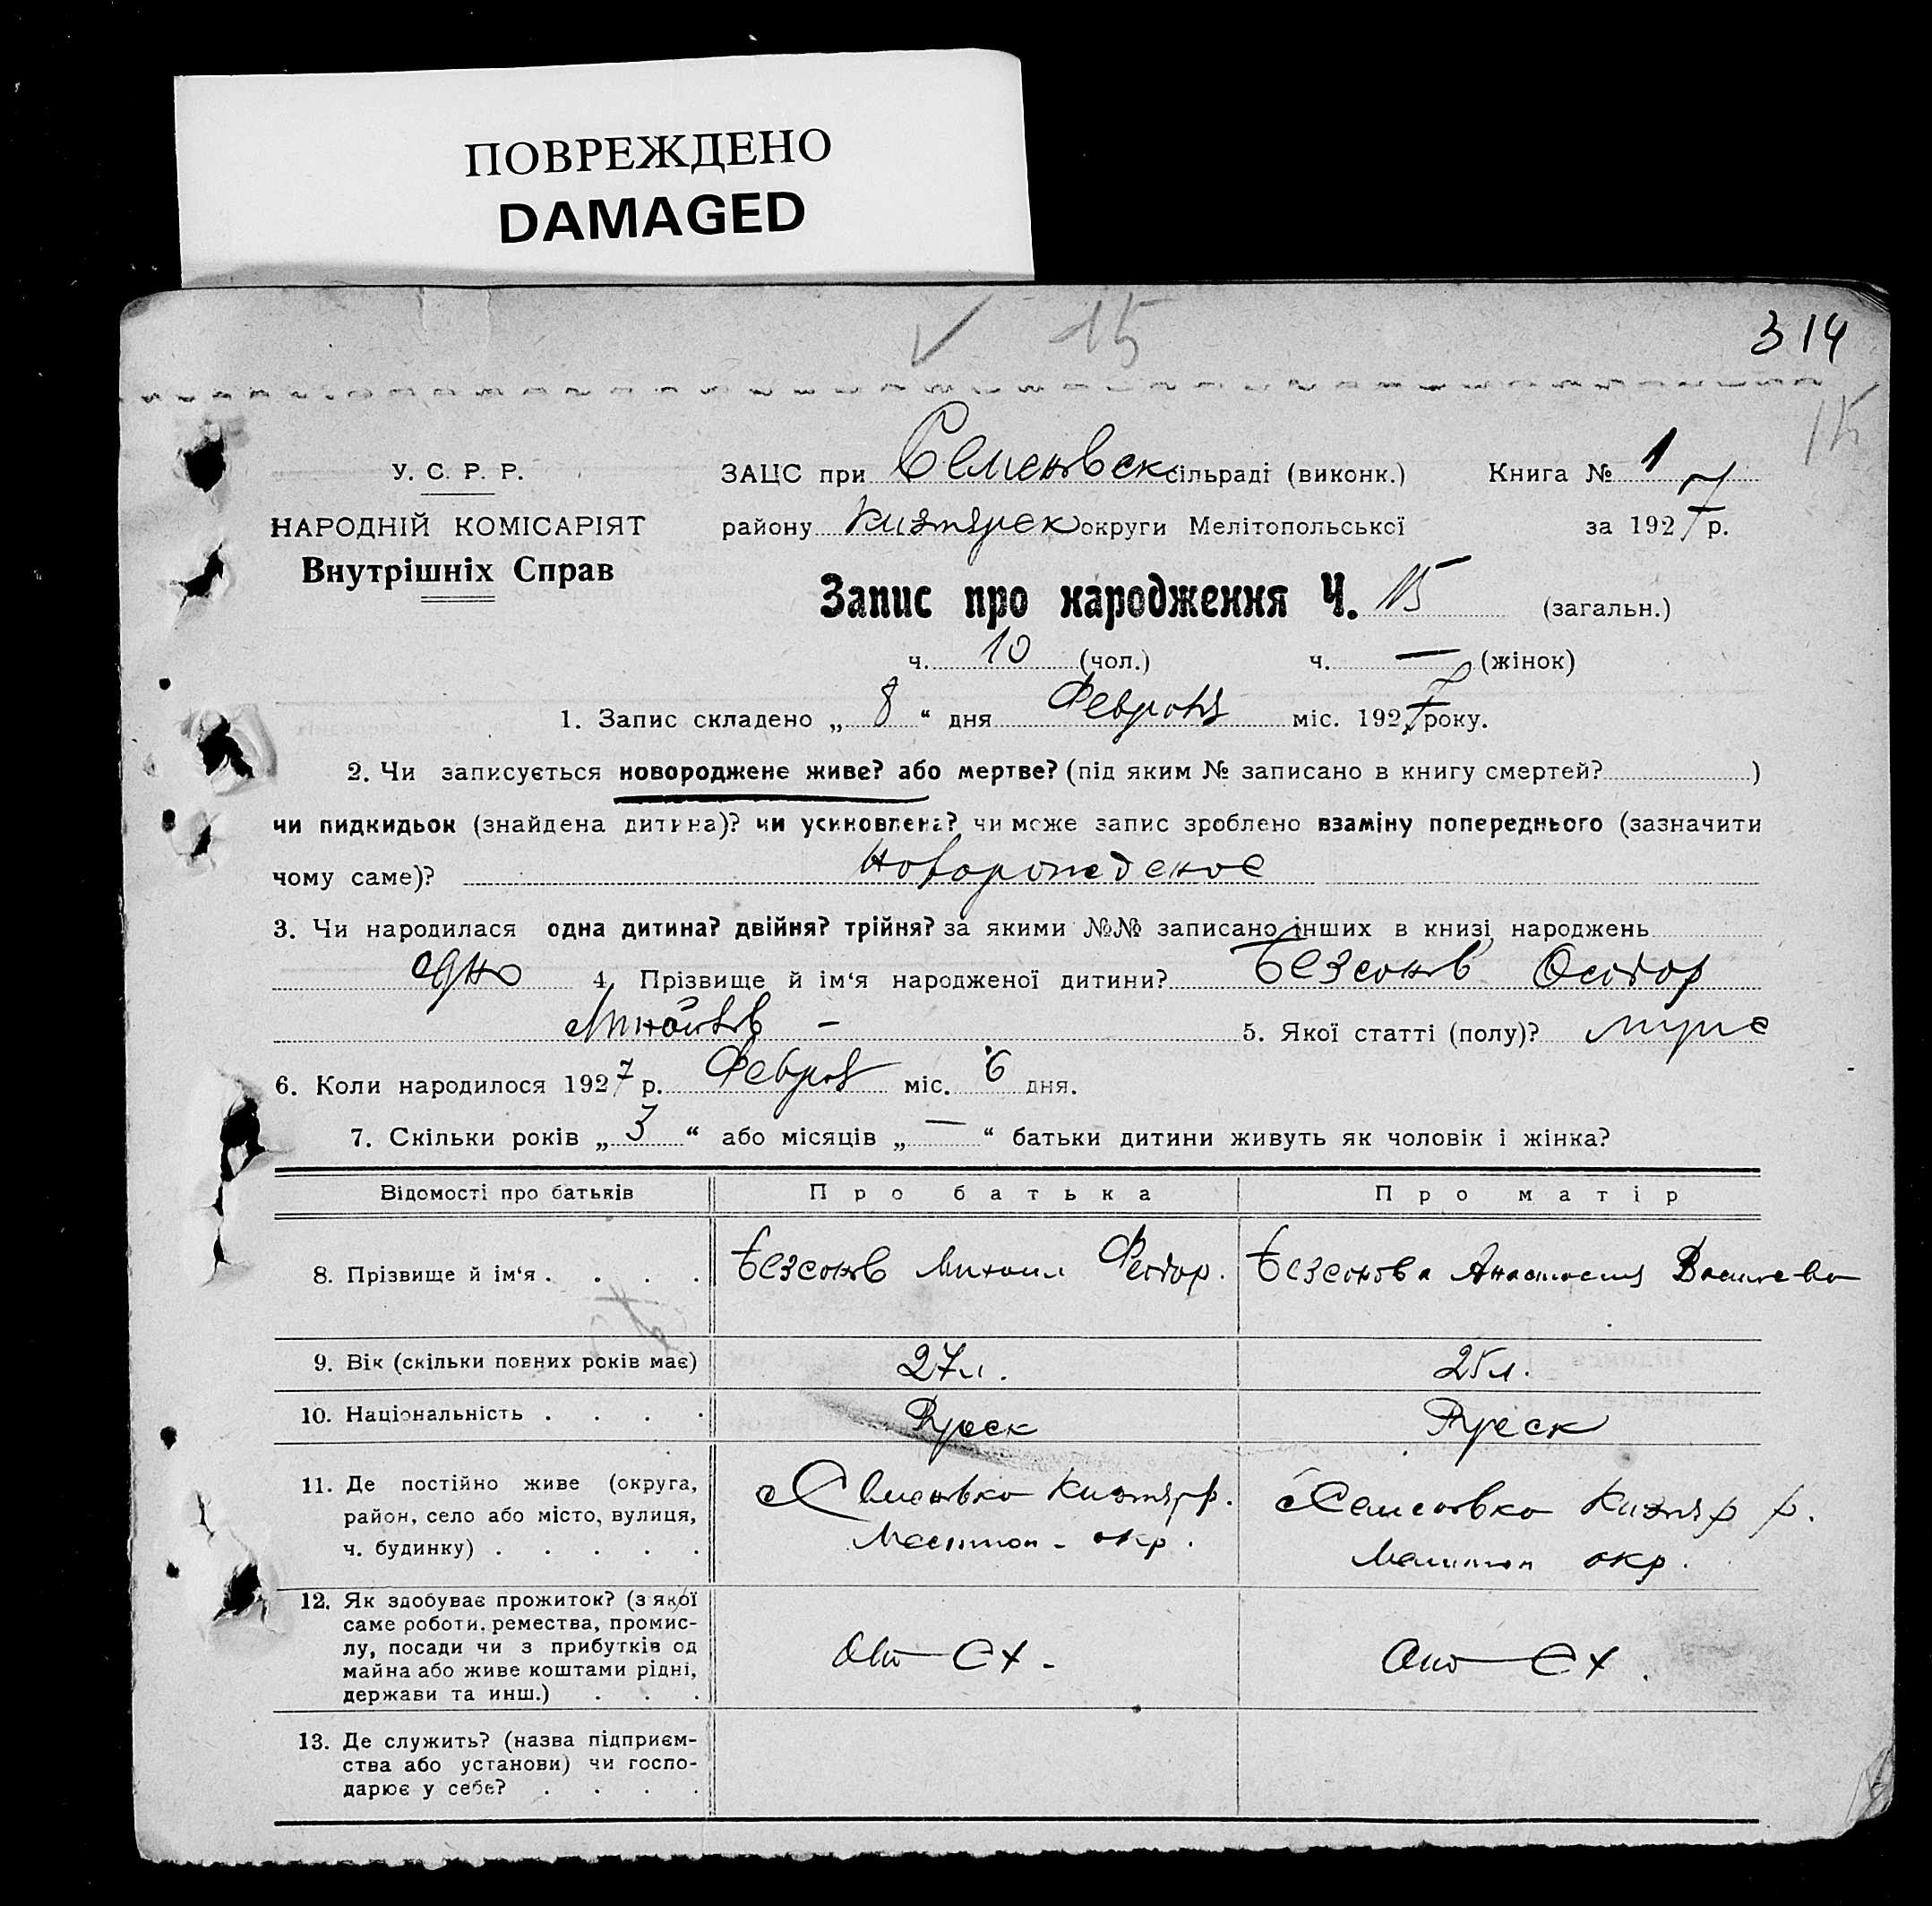 ПОВРЕЖДЕНО
DAMAGED
15
314
15
У. С. Р. Р.
НАРОДНІЙ КОМІСАРІЯТ
Внутрішніх Справ
ЗАЦС при Семеновск сільраді (виконк.) Книга № 1
району Кизиярск округи Мелітопольської за 1927 р.
Запис про народження Ч. 15 (загальн.)
ч. 10 (чол.) ч. — (жінок)
1. Запис складено „ 8 “ дня Февроля міс. 1927 року.
2. Чи записується новороджене живе? або мертве? (під яким № записано в книгу смертей? )
чи пидкидьок (знайдена дитина)? чи усиновлена? чи може запис зроблено взаміну попереднього (зазначити
чому саме)?Новорожденое
3. Чи народилася одна дитина? двійня? трійня? за якими №№ записано інших в книзі народжень
одно 4. Прізвище й ім‘я народженої дитини? Безсонов
5. Якої статті (полу)? муже
6. Коли народилося 1927 р. Февроля міс. 6 дня.
7. Скільки років „ 3 “ або місяців „ — “ батьки дитини живуть як чоловік і жінка?
Відомості про батьків Про батька Про матір
8. Прізвище й ім‘я . . . . Безсонов Михоил Феодор. Безсонова Анастасия
9. Вік (скільки повних років має) 27 л. 25 л.
10. Національність . . . . Руск Руск
11. Де постійно живе (округа,
район, село або місто, вулиця,
ч. будинку) . . . . .
Семеновко Кизияр р.
Мелитоп. окр.
Семеновко Кизияр р.
Мелитоп окр.
12. Як здобуває прожиток? (з якої
саме роботи, ремества, промис-
лу, посади чи з прибутків од
майна або живе коштами рідні,
держави та инш.) . . .
СХ.
СХ.
13. Де служить? (назва підприєм-
ства або установи) чи госпо-
дарює у себе? . . . .